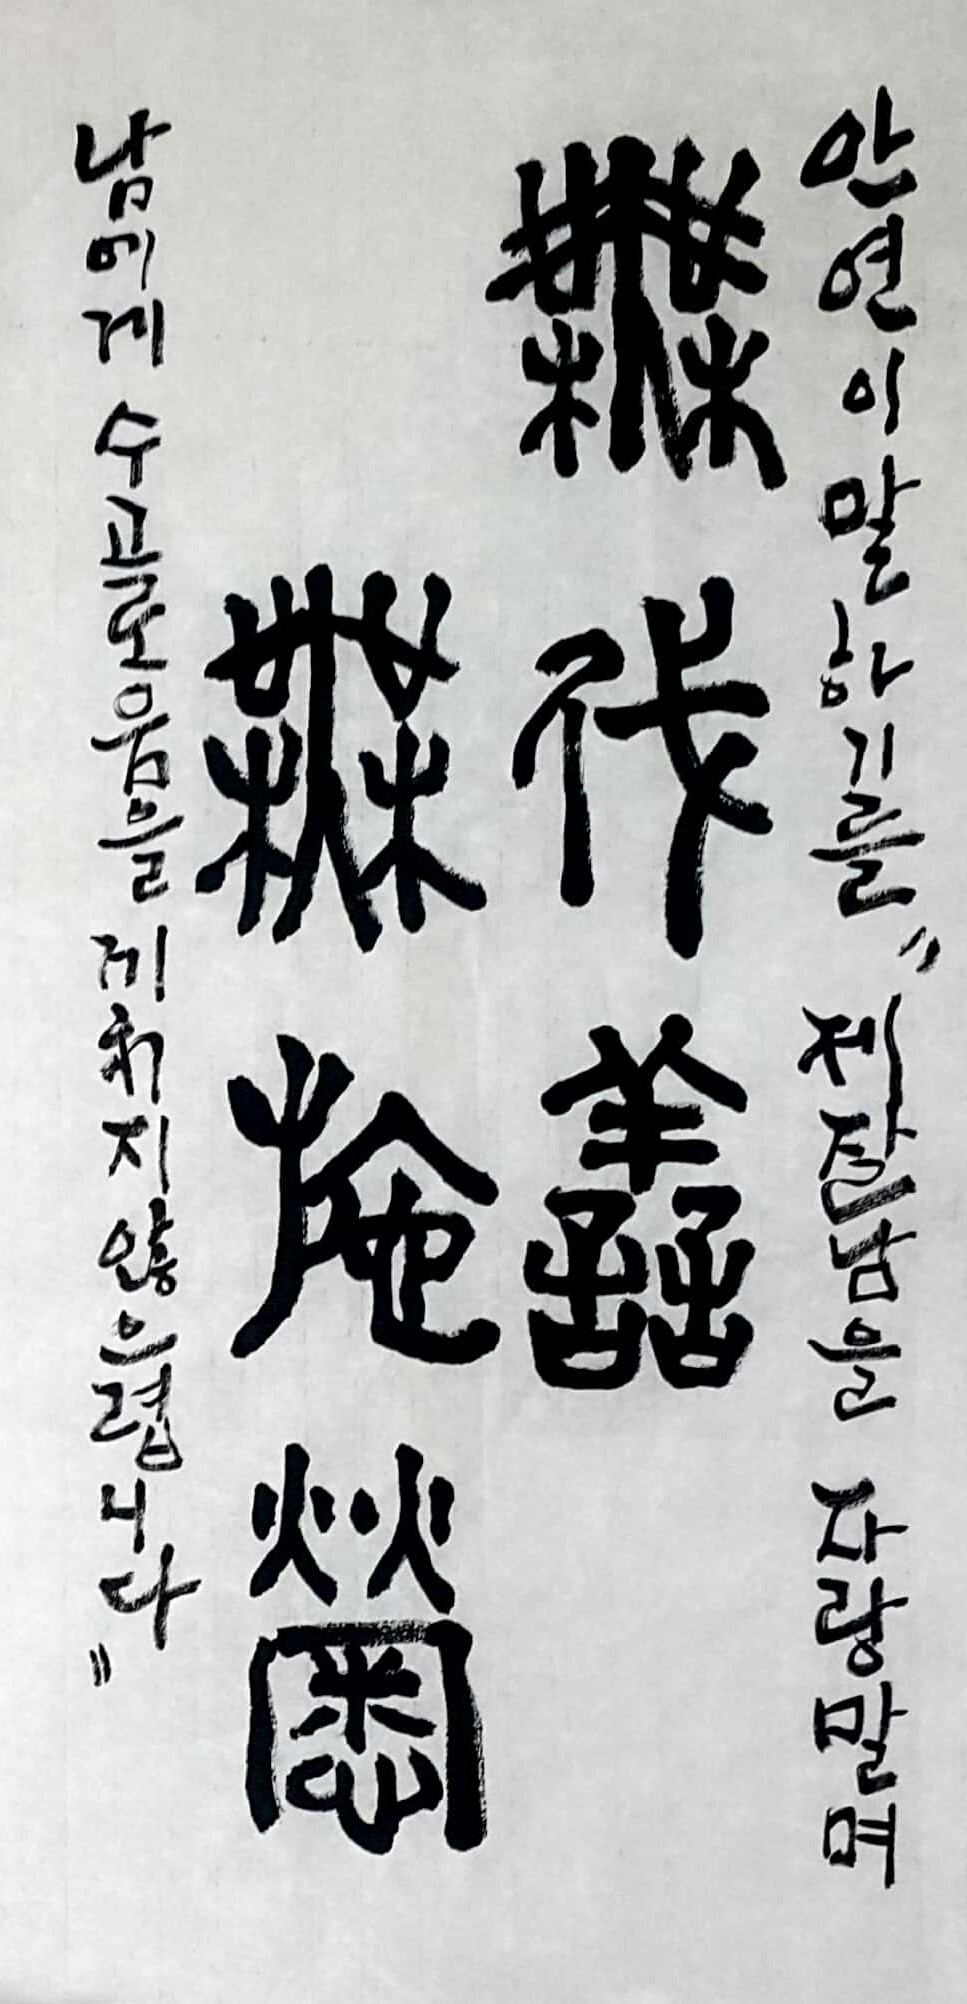 안연이 말하기를 " 제잘남을 자랑말며
無伐善
無施勞
남에게 수고로움을 끼치지 않으렵니다 "